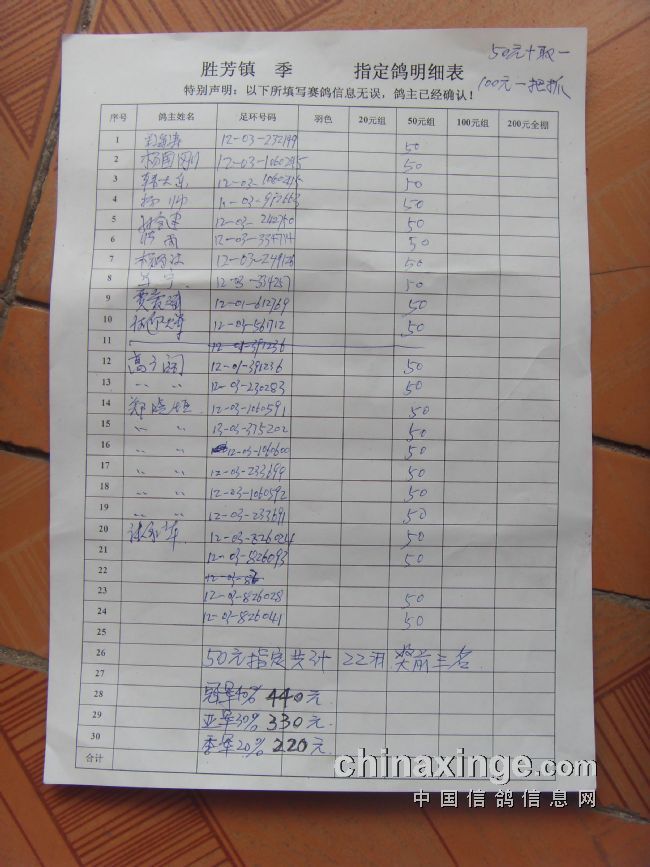 50元十取一
100元一把抓
胜芳镇 季 指定鸽明细表
特别声明：以下所填写赛鸽信息无误，鸽主已经确认！
序号 鸽主姓名 足环号码 羽色 20元组 50元组 100元组 200元全棚
1 12-03-232199 50
2 杨国刚 12-03-1060245 50
3 12-03-1060215 50
4 杨帅 50
5 12-03-240750 50
6 12-03-334744 50
7 12-03-249126 50
8 12-03-334287 50
9 12-01-612769 50
10 12-03-561712 50
11 12-01-391236
12 12-01-391236 50
13 〃 〃 12-03-230283 50
14 郑晓恒 12-03-1060591 50
15 〃 〃 13-03-375202 50
16 〃 〃 12-03-1060600 50
17 〃 〃 12-03-233699 50
18 〃 〃 12-03-1060592 50
19 〃 〃 12-03-233691 50
20 12-03-826024 50
21 12-03-826093 50
22 12-03-
23 12-03-826028 50
24 12-03-826041 50
25
26 50元指定共计 22羽 奖前三名
27
28 冠军40% 440元
29 亚军30% 330元
30 季军20% 220元
合计
chinaxinge.com
中国信鸽信息网